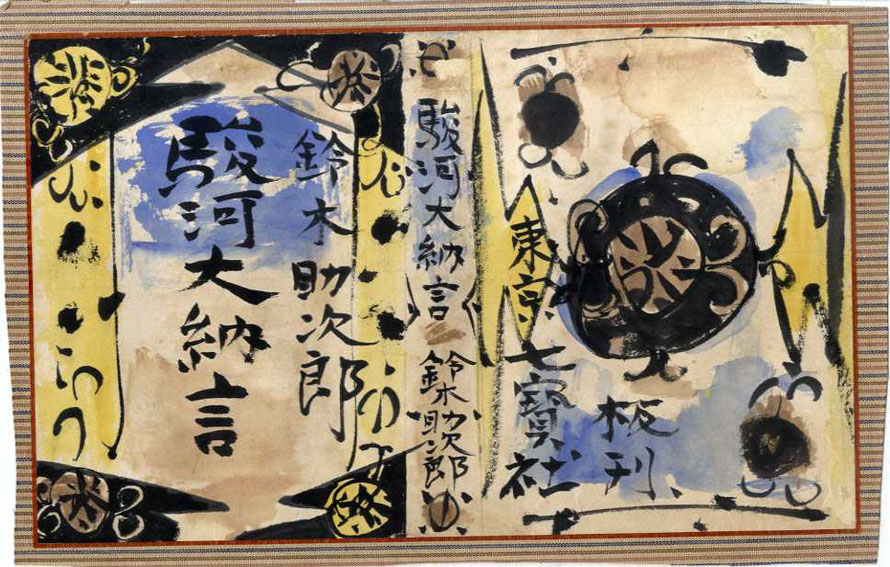 駿河大納言
鈴木助次郎
駿河大納言
鈴木助次郎
東京
七寶社
板刊